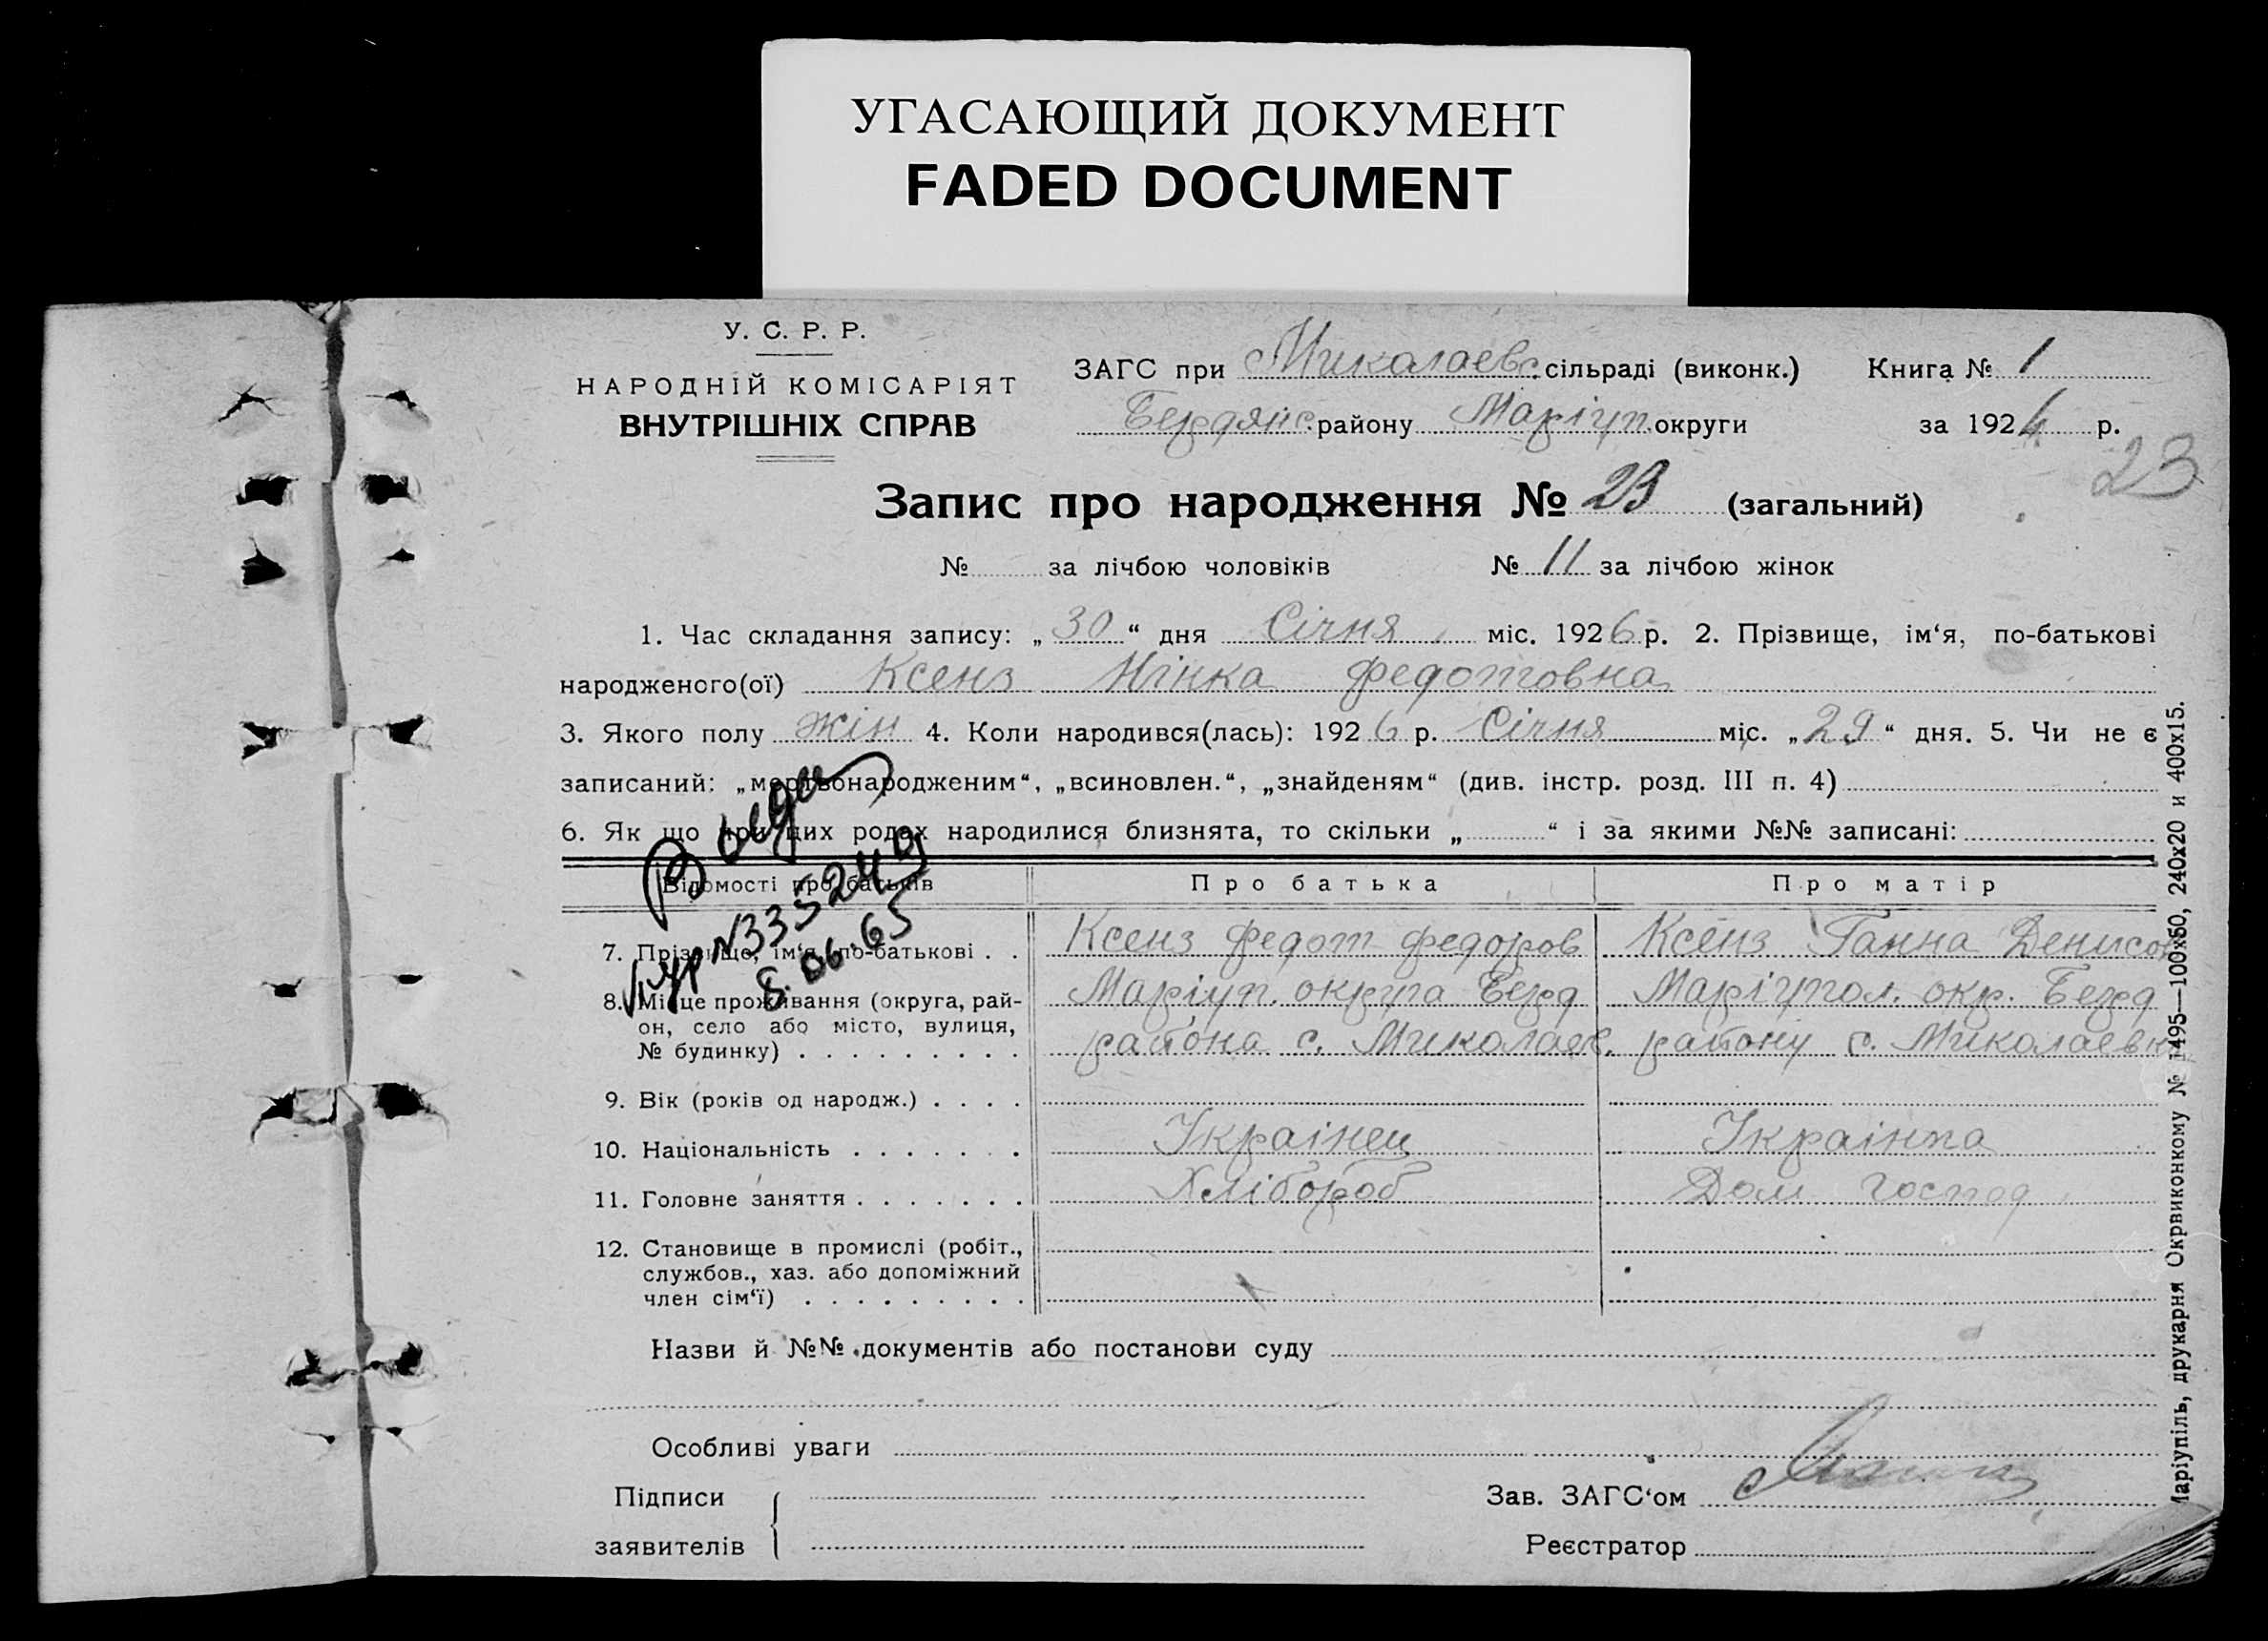 УГАСАЮЩИЙ ДОКУМЕНТ
FADED DOCUMENT
У. С. Р. Р.
НАРОДНІЙ КОМІСАРІЯТ
ВНУТРІШНІХ СПРАВ
ЗАГС при Миколаевс. сільраді (виконк.) Книга № 1
Бердянс. району Маріуп. округи за 1926 р.
23
Запис про народження № 23 (загальний)
№ за лічбою чоловіків № 11 за лічбою жінок
1. Час складання запису: „30“ дня Січня міс. 1926 р. 2. Прізвище, ім‘я, по-батькові
народженого(ої) Ксенз Нінка Федотовна
3. Якого полу жін 4. Коли народився(лась): 1926 р. Січня міс. „29“ дня. 5. Чи не є
записаний: „мертвонародженим“, „всиновлен.“, „знайденям“ (див. інстр. розд. III п. 4)
6. Як що при цих родах народилися близнята, то скільки „ “ і за якими №№ записані:
Відомості про батьків Про батька Про матір
7. Прізвище, ім‘я, по-батькові . . Ксенз Федот Федоров Ксенз Ганна Денисов
8. Місце проживання (округа, рай- Маріуп. округа Берд Маріупол. окр. Берд
он, село або місто, вулиця,
№ будинку) . . . . . . . . . района с. Миколаев. району с. Миколаевк
9. Вік (років од народж.) . . . .
10. Національність . . . . . . . Украінец Украінка
11. Головне заняття . . . . . . . Хлібороб Дом господ
12. Становище в промислі (робіт.,
службов., хаз. або допоміжний
член сім‘ї) . . . . . . . . .
Назви й №№ документів або постанови суду
Особливі уваги
Підписи
заявителів
Зав. ЗАГС‘ом
Реєстратор
№335249
8.06.65
Маріупіль, друкарня Окрвиконкому № 1495—100х50, 240х20 и 400х15.